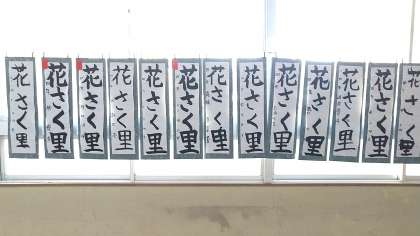 花さく里
花さく里
花さく里
花さく里
花さく里
花さく里
花さく里
花さく里
花さく里
花さく里
花さく里
花さく里
花さく里